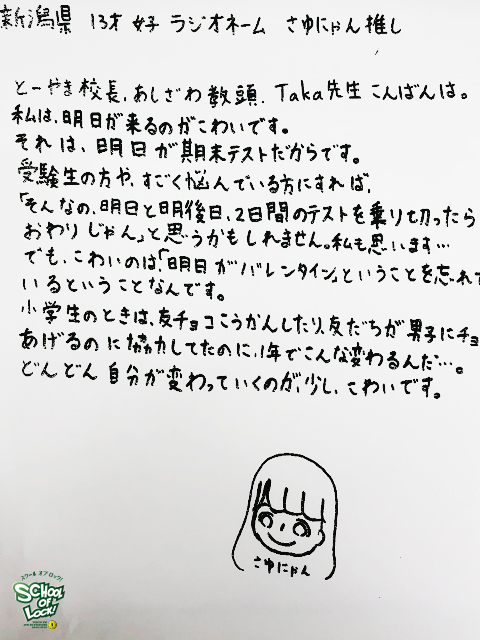 新潟県 13才 女子 ラジオネーム さゆにゃん推し
とーやま校長、あしざわ教頭、Taka先生こんばんは。
私は、明日が来るのがこわいです。
それは、明日が期末テストだからです。
受験生の方や、すごく悩んでいる方にすれば、
「そんなの、明日と明後日、2日間のテストを乗り切ったら
おわりじゃん」と思うかもしれません。私も思います…
でも、こわいのは、「明日がバレンタイン」ということを忘れて
いるということなんです。
小学生のときは、友チョコこうかんしたり、友だちが男子にチョ
あげるのに協力してたのに、1年でこんな変わるんだ…。
どんどん自分が変わっていくのが、少し、こわいです。
さゆにゃん
スクール オブ ロック!
SCHOOL
OF
LOCK!